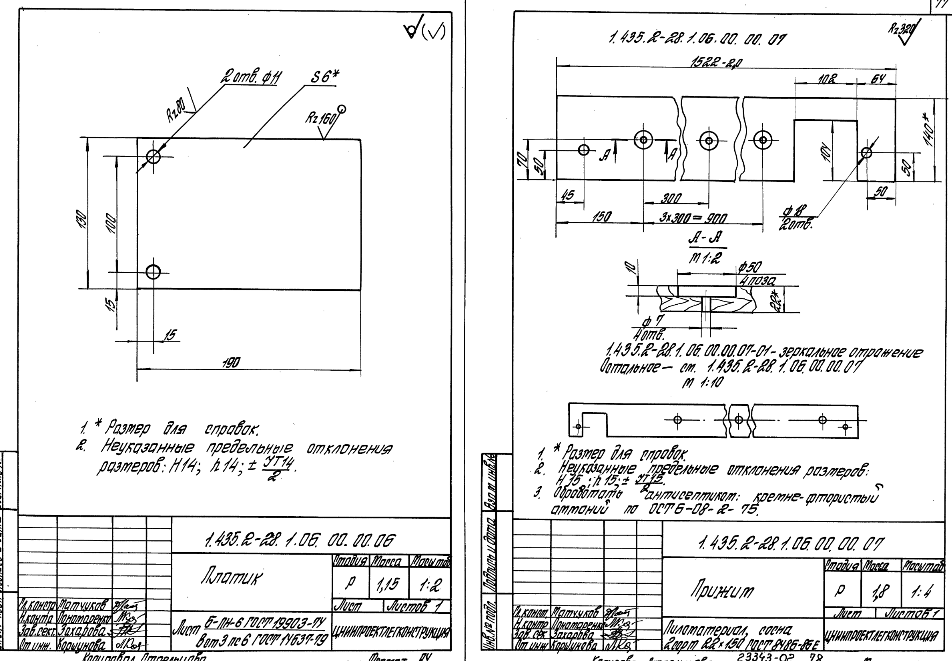 √(√)
2 отв. ф11
S6*
Rz80
Rz160
130
100
15
15
190
1. * Размер для справок.
2. Неуказанные предельные отклонения
размеров: H14; h14; ± УТ14/2.
1.435.2-28.1.06.00.00.06
Платик
Стадия Масса Масштаб
Р 1,15 1:2
Лист Листов 1
Гл.констр Матчиков
Н.контр Пономаренко
Зав.сект. Захарова
От.инж. Коршунова
Лист Б-ПН-6 ГОСТ 19903-74
Вст3пс6 ГОСТ 14637-79
ЦНИИПРОЕКТЛЕГКОНСТРУКЦИЯ
1.435.2-28.1.06.00.00.07
Rz320
1522-2,0
102
64
140*
104
70
50
А
А
50
45
300
50
150
3х300=900
ф18
2отв.
А-А
М 1:2
10
ф50
4 поза
22*
ф7
4отв.
1.435.2-28.1.06.00.00.07-01 - зеркальное отражение
Остальное - см. 1.435.2-28.1.06.00.00.07
М 1:10
1. * Размер для справок
2. Неуказанные предельные отклонения размеров:
H15; h15; ± УТ15/2
3. Обработать антисептиком: кремне-фтористый
аммоний по ОСТ6-08-2-75.
1.435.2-28.1.06.00.00.07
Прижим
Стадия Масса Масштаб
Р 1,8 1:4
Лист Листов 1
Гл.конст Матчиков
Н.контр Пономаренко
Зав.сек Захарова
От.инж. Коршунова
Пиломатериал, сосна
2сорт 22х150 ГОСТ 8486-86Е
ЦНИИПРОЕКТЛЕГКОНСТРУКЦИЯ
Инв.№ подл. Подпись и дата Взам.инв.№
23343-02 78